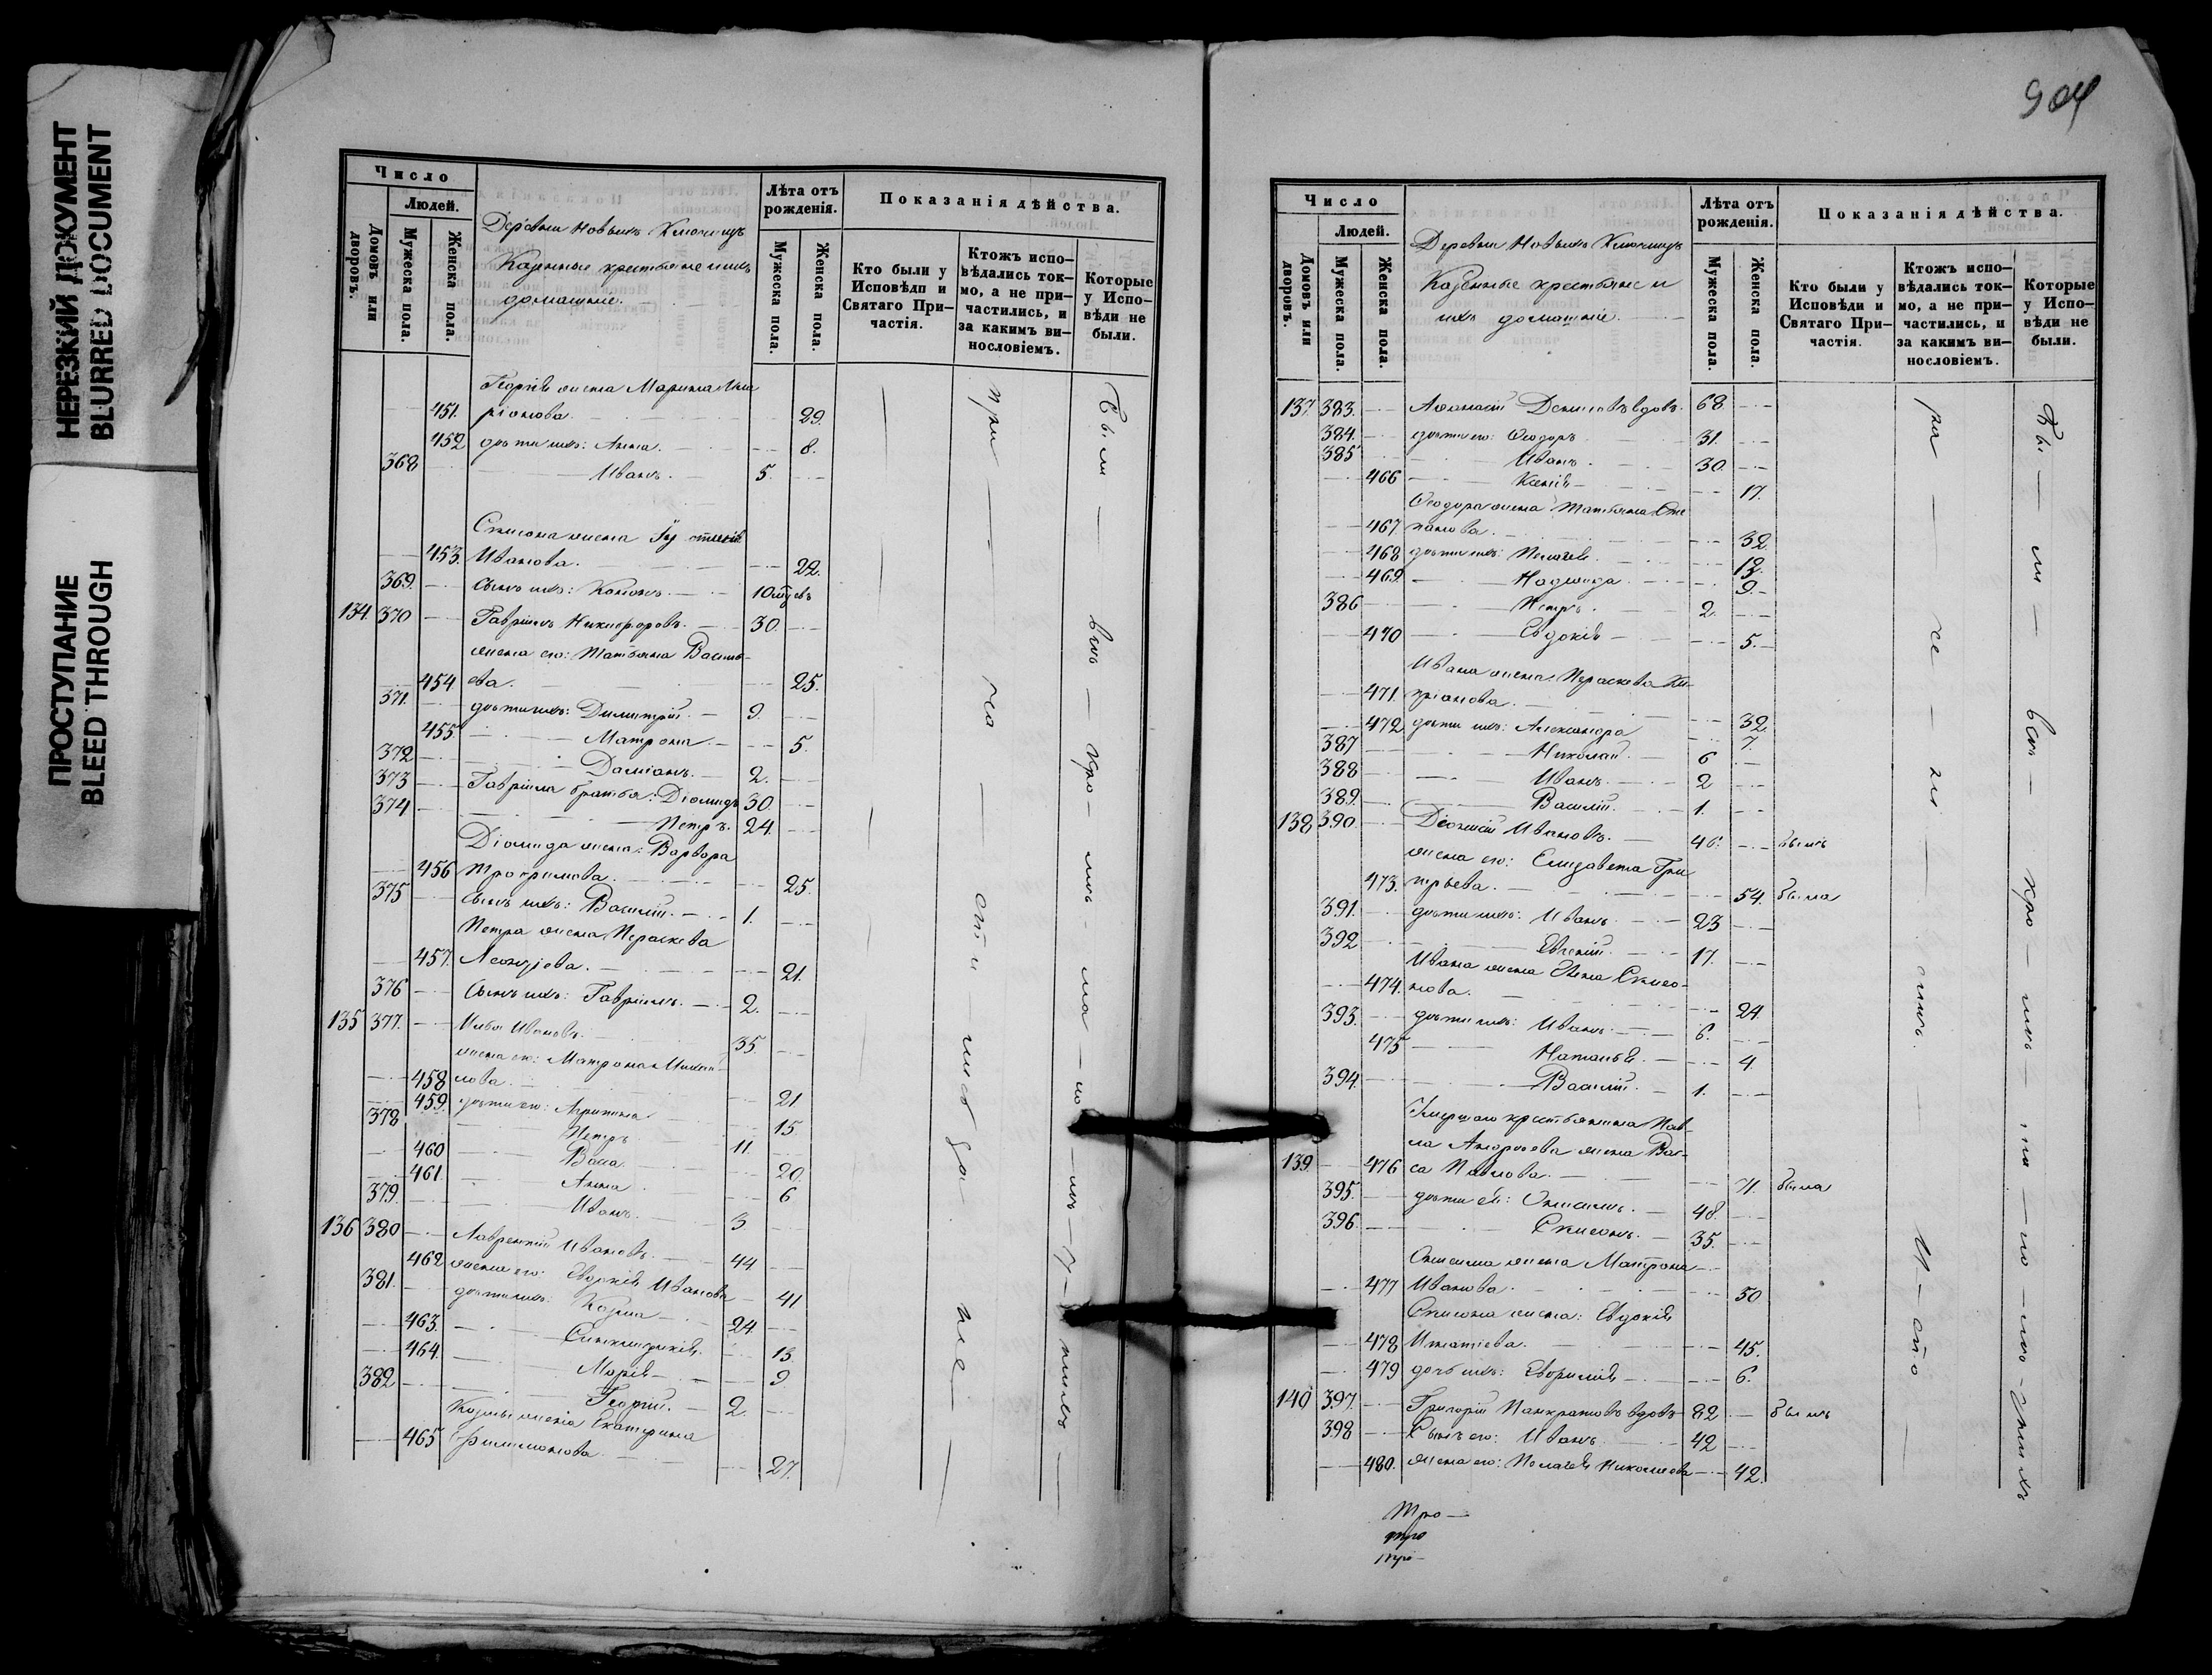 НЕРЕЗКИЙ ДОКУМЕНТ
BLURRED DOCUMENT
ПРОСТУПАНИЕ
BLEED THROUGH
Число
Людей.
Домовъ или дворовъ.
Мужеска пола.
Женска пола.
Деревни Новыхъ Ключищъ
Казенные крестьяне и ихъ
домашніе.
Лѣта отъ рожденія.
Мужеска пола.
Женска пола.
Показанія дѣйства.
Кто были у Исповѣди и Святаго При-частія.
Ктожъ испо-вѣдались ток-мо, а не при-частились, и за какимъ ви-нословіемъ.
Которые у Испо-вѣди не были.
Георгія жена Марина Ила
451. ріонова. 29.
452 дѣти ихъ: Анна. 8.
368 Иванъ. 5.
Симеона жена
453. Иванова. 22.
369. сынъ ихъ: Кононъ.
134. 370 Гавріилъ Никифоровъ. 30.
жена его: Татьяна Василь-
454 ева. 25.
371. дѣти ихъ: Димитрій. 9.
455 Матрона. 5.
372 Даміанъ. 2.
373 Гавріила братья: Діомидъ 30
374 Петръ. 24.
Діомида жена: Варвара
456 Трофимова. 25.
375 сынъ ихъ: Василій. 1.
Петра жена Параскева
457. Леонтіева. 21.
376 Сынъ ихъ: Гавріилъ. 2.
135 377. Илья Ивановъ. 35.
жена его: Матрона Михаи-
458 лова. 21
459. дѣти его: Агрипина 15.
378 Петръ 11.
460 Васса. 20.
461. Анна 6
379. Иванъ. 3
136 380 Лаврентій Ивановъ. 44.
462 жена его: Евдокія Иванова 41
381. дѣти ихъ: Козма 24.
463. Синклитикія. 13
464. Марія 9.
382 Георгій. 2.
Козмы жена Екатерина
465 Филимонова. 27.
904
Число
Людей.
Домовъ или дворовъ.
Мужеска пола.
Женска пола.
Деревни Новыхъ Ключищъ
Казенные крестьяне и
ихъ домашніе.
Лѣта отъ рожденія.
Мужеска пола.
Женска пола.
Показанія дѣйства.
Кто были у Исповѣди и Святаго При-частія.
Ктожъ испо-вѣдались ток-мо, а не при-частились, и за какимъ ви-нословіемъ.
Которые у Испо-вѣди не были.
137. 383. Аѳанасій Денисовъ вдовъ. 68.
384. дѣти его: Ѳеодоръ 31.
385 Иванъ. 30.
466 Ксенія 17.
Ѳеодора жена Татьяна Сте
467 панова. 32.
468 дѣти ихъ: Пелагія. 12.
469. Надежда. 9.
386 Петръ. 2.
470 Евдокія 5.
Ивана жена Параскева Ки-
471. пріанова. 32.
472 дѣти ихъ: Александра 7.
387 Николай. 6
388 Иванъ. 2
389. Василій. 1.
138 390. Діонисій Ивановъ. былъ
жена его: Елизавета Гри
473. горьева. 54. была
391. дѣти ихъ: Иванъ. 23
392 Евгеній. 17.
Ивана жена Анна Симео-
474. нова. 24.
393. дѣти ихъ: Иванъ. 6.
475 Наталья. 4.
394. Василій. 1.
Умершаго крестьянина Пав-
ла Андреева жена Вас-
139. 476 са Павлова. 71. была
395. дѣти ея: Онисимъ. 48.
396. Симеонъ. 35.
Онисима жена Матрона
477 Иванова. 50
Симеона жена: Евдокія
478 Игнатіева. 45.
479 дочь ихъ: Евфимія 6.
140 397. Григорій Панкратовъ вдовъ 82 былъ
398 Сынъ его: Иванъ. 42
480. жена его: Пелагія Николаева 42.